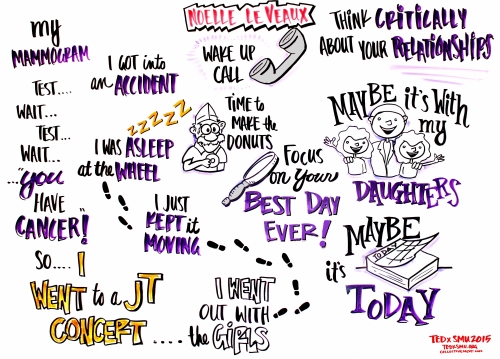 NOELLE LEVEAUX
my
MAMMOGRAM
TEST....
WAIT...
TEST...
WAIT...
..."you
HAVE
CANCER!"
SO.... I
WENT to a JT
CONCEPT ....
I GOT into
an ACCIDENT
ZZZZZ
I WAS ASLEEP
at the WHEEL
I JUST
KEPT it
MOVING
I WENT
OUT WITH
the GiRLS
WAKE UP
CALL
TiME to
MAKE the
DONUTS
FOCUS
on YOUR
BEST DAY
EVER!
THiNK CRiTiCALLY
ABOUT YOUR RELATiONSHiPS
MAYBE it's With
my
DAUGHTERS
MAYBE
TODAY
it's
TODAY
TEDx SMU 2015
TEDXSMU.ORG